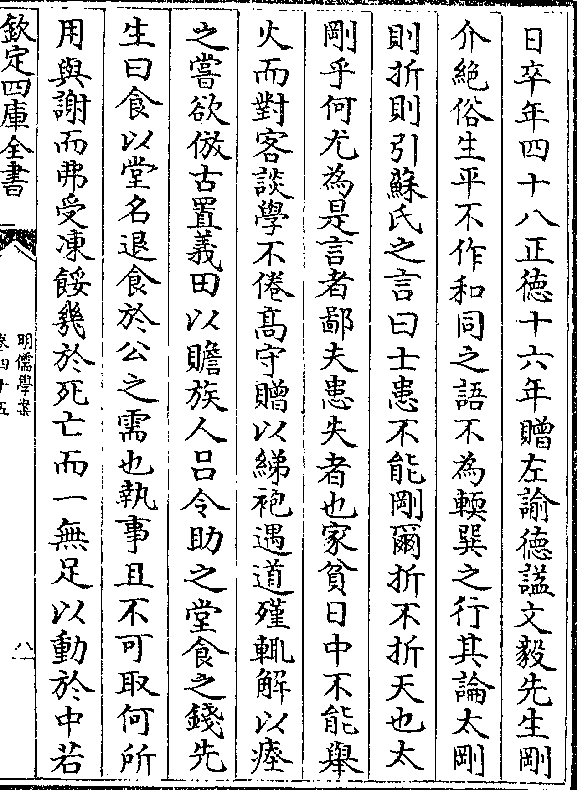 日卒年四十八正徳十六年贈左諭徳謚文毅先生剛
介絶俗生平不作和同之語不為輭巽之行其論太剛
則折則引蘇氏之言曰士患不能剛爾折不折天也太
剛乎何尤為是言者鄙夫患失者也家貧日中不能舉
火而對客談學不倦髙守贈以綈袍遇道殣輒解以瘞
之嘗欲倣古置義田以贍族人吕令助之堂食之錢先
生曰食以堂名退食於公之需也執事且不可取何所
用與謝而弗受凍餒幾於死亡而一無足以動於中若
欽定四庫全書
明儒學案
卷四十五
八